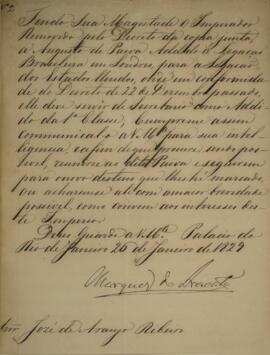 Tendo Sua Magestade o Imperador
Removido pelo Decreto da copia junta,
a Augusto de Paiva Addido á Legação
Brasileira em Londres para a Legação
dos Estados Unidos, onde em conformida
de do Decreto de 22 de Dezembro passado,
elle deve servir de Secretario como Addi
do da 1ª Classe, Cumpre-me assim
communical-o a V.Mce para sua intel
ligencia, e a fim de que procure, sendo pos
sivel, reunir-se ao dito Paiva e seguirem
para o novo destino que lhes he marcado,
ou acharem-se ali com a maior brevidade
possivel, como convem aos interesses des
te Imperio.
Deos Guarde a V.Mce Palacio do
Rio de Janeiro 26 de Janeiro de 1829
Marquez de Aracaty
José de Araujo Ribeiro